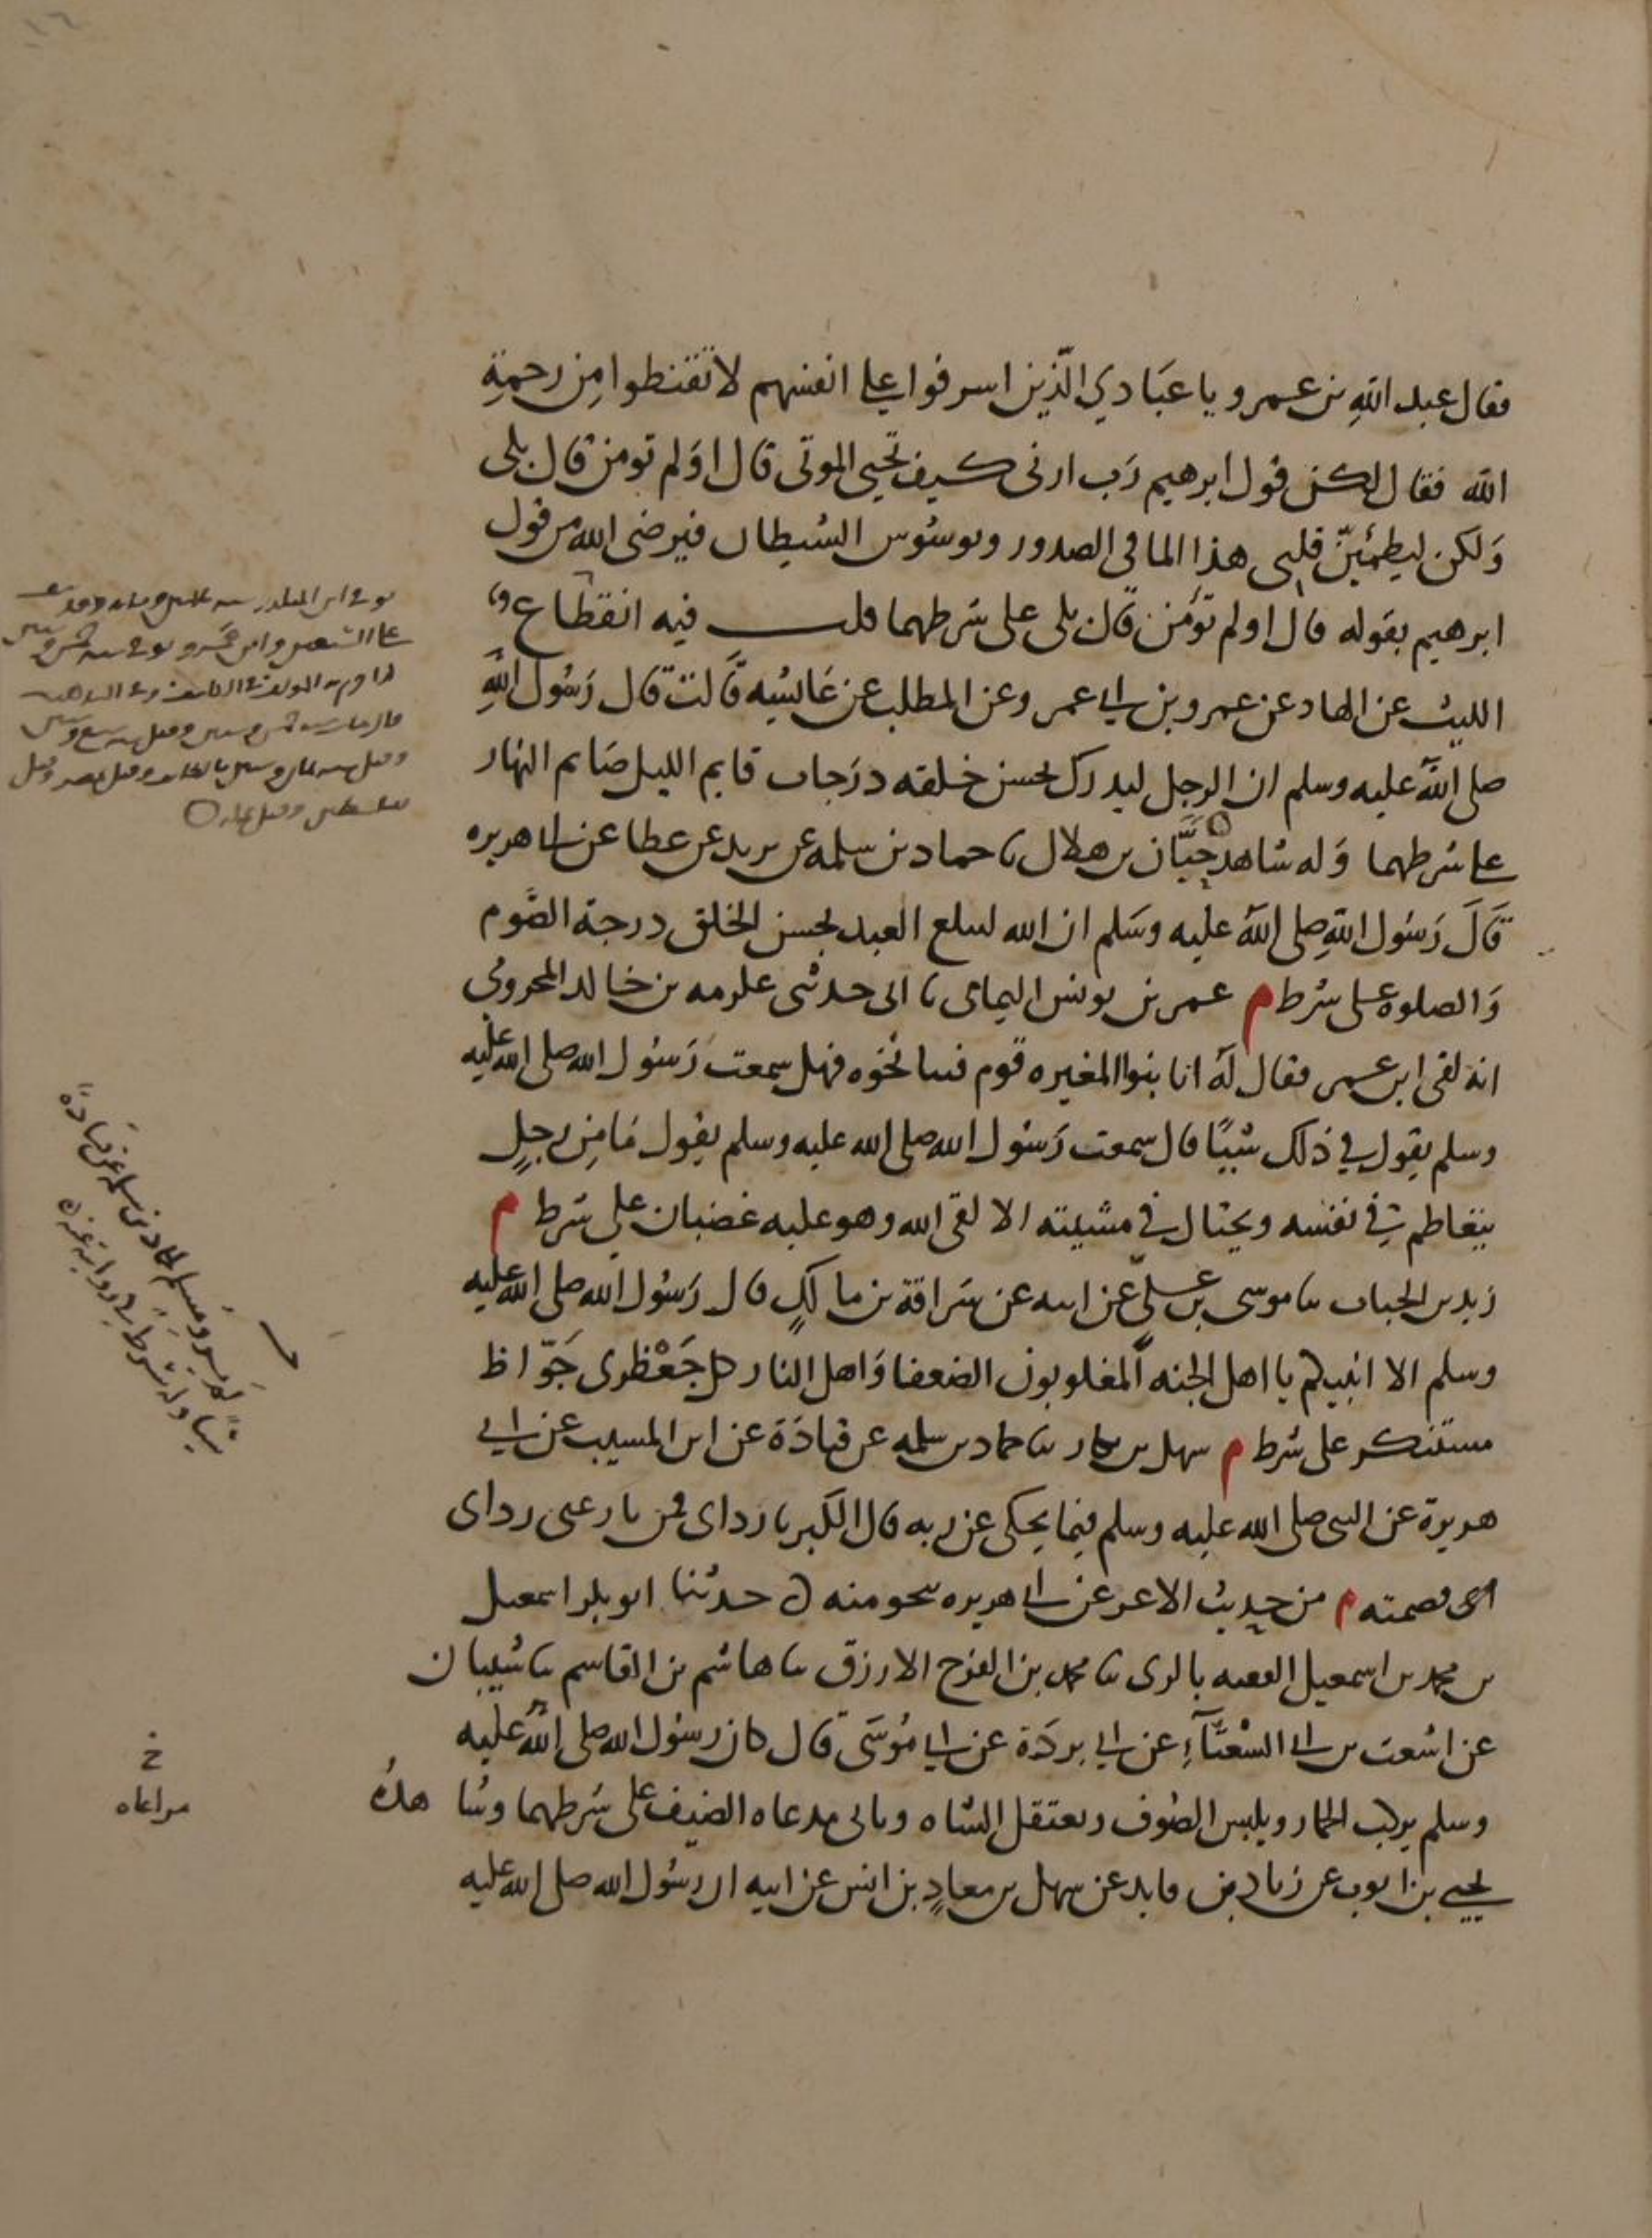 فقال عبد الله بن عمرو يا عبادي الذين اسرفوا على انفسهم لا تقنطوا من رحمة
الله فقال لكن قول ابرهيم رب ارنى كيف تحيي الموتى قال اولم تومن قال بلى
ولكن ليطمئن قلبى هذا لما فى الصدور ويوسوس الشيطان فرضى الله من قول
ابرهيم بقوله قال اولم تؤمن قال بلى على شرطهما قلت فيه انقطاع
الليث عن الهاد عن عمرو بن ابي عمر وعن المطلب عن عايشه قالت قال رسول الله
صلى الله عليه وسلم ان الرجل ليدرك بحسن خلقه درجات قايم الليل صايم النهار
على شرطهما وله شاهد حبان بن هلال ثنا حماد بن سلمه عن بديد عن عطا عن ابى هريره
قال رسول الله صلى الله عليه وسلم ان الله ليبلغ العبد بحسن الخلق درجة الصوم
والصلوه على شرط م عمر بن يونس اليمامى ثنا ابى حدثنى عكرمه بن خالد المخزومى
انه لقى ابن عمر فقال له انا بنوا المغيره قوم فينا نخوه فهل سمعت رسول الله صلى الله عليه
وسلم يقول في ذلك شيئا قال سمعت رسول الله صلى الله عليه وسلم يقول ما من رجل
يتعاظم في نفسه ويختال في مشيته الا لقى الله وهو عليه غضبان على شرط م
زيد بن الحباب ثنا موسى بن على عن ابيه عن سراقة بن مالك قال رسول الله صلى الله عليه
وسلم الا انبيكم يا اهل الجنه المغلوبون الضعفا واهل النار كل جعظرى جواظ
مستكبر على شرط م سهل بن بكار ثنا حماد بن سلمه عن قتادة عن ابن المسيب عن ابي
هريرة عن النبى صلى الله عليه وسلم فيما يحكى عن ربه قال الكبريا رداى فمن نازعنى رداى
قصمته م من حديث الاغر عن ابى هريره بنحو منه حدثنا ابو بكر اسمعيل
بن محمد بن اسمعيل الفقيه بالرى ثنا محمد بن الفرج الازرق ثنا هاشم بن القاسم ثنا شيبان
عن اشعث بن ابى الشعثاء عن ابي بردة عن ابي موسى قال كان رسول الله صلى الله عليه
وسلم يركب الحمار ويلبس الصوف ويعتقل الشاه وياتى مدعاه الضيف على شرطهما وشاهده
يحيى بن ايوب عن زبان بن فايد عن سهل بن معاذ بن انس عن ابيه ان رسول الله صلى الله عليه
خ
مراعاه